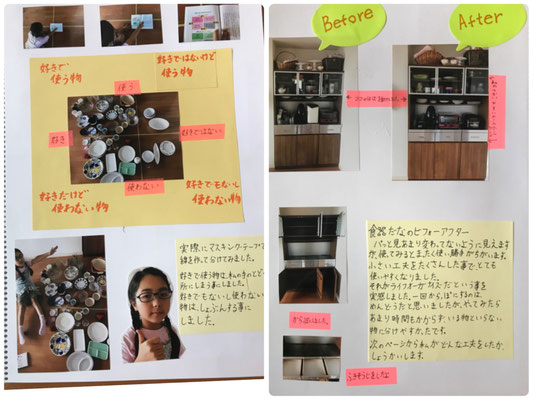 好きで
使う物
好きではないけど
使う物
使う
好き
好きではない
使わない
好きだけど
使わない物
好きでもないし
使わない物
実際にマスキングテープで
線を作って分けてみました。
好きで使う物は、私の手のとどく
所にしまう事にしました。
好きでもないし使わない
物は、しょぶんする事に
しました。
Before
After
からっぽにしました。
ふきそうじをしたよ
食器だなのビフォーアフター
パッと見あまり変わってないように見えます
が、使ってみるとまったく使い勝手がちがいます。
小さい工夫をたくさんした事で、とても
使いやすくなりました。
それからライフオーガナイズだという事を
実感しました。一回からっぽにするのは、
めんどうだと思いましたが、やってみたら
あまり時間もかからず、いる物といらない
物に分けやすかったです。
次のページから私がどんな工夫をしたか、
しょうかいします。